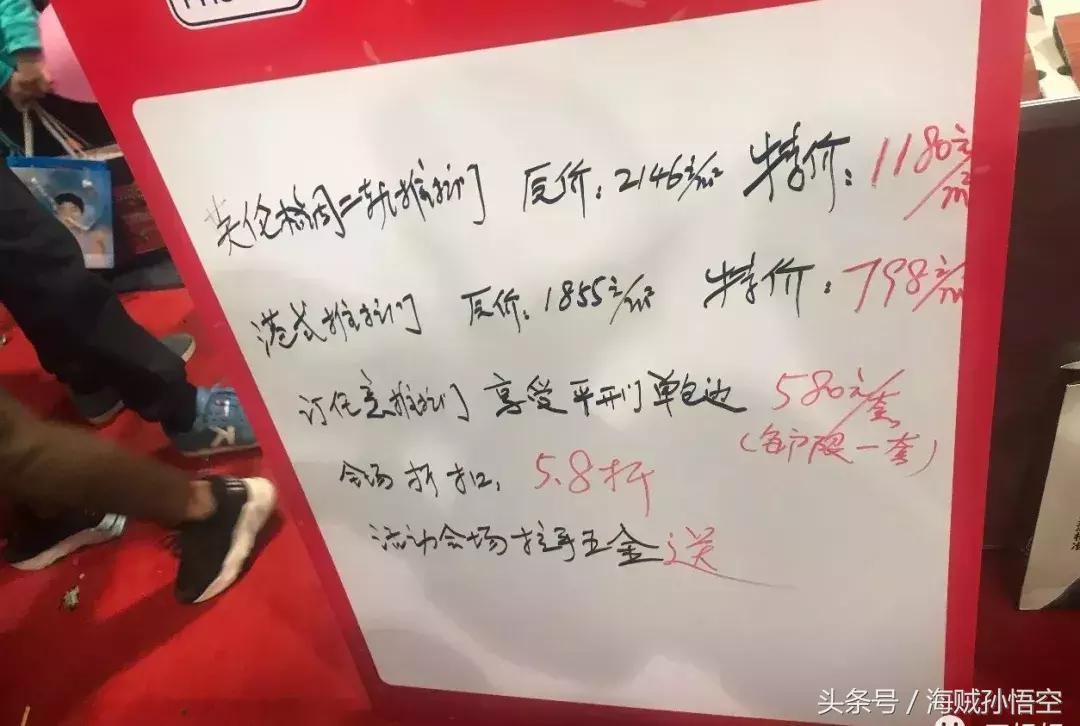 英伦格调二轨推拉门 原价:2146元/㎡ 特价:1180元/㎡
港式推拉门 原价:1855元/㎡ 特价:798元/㎡
订任意推拉门 享受平开门单包边 580元/套
(每户限一套)
会场折扣:5.8折
活动会场拉手五金送
头条号 / 海贼孙悟空